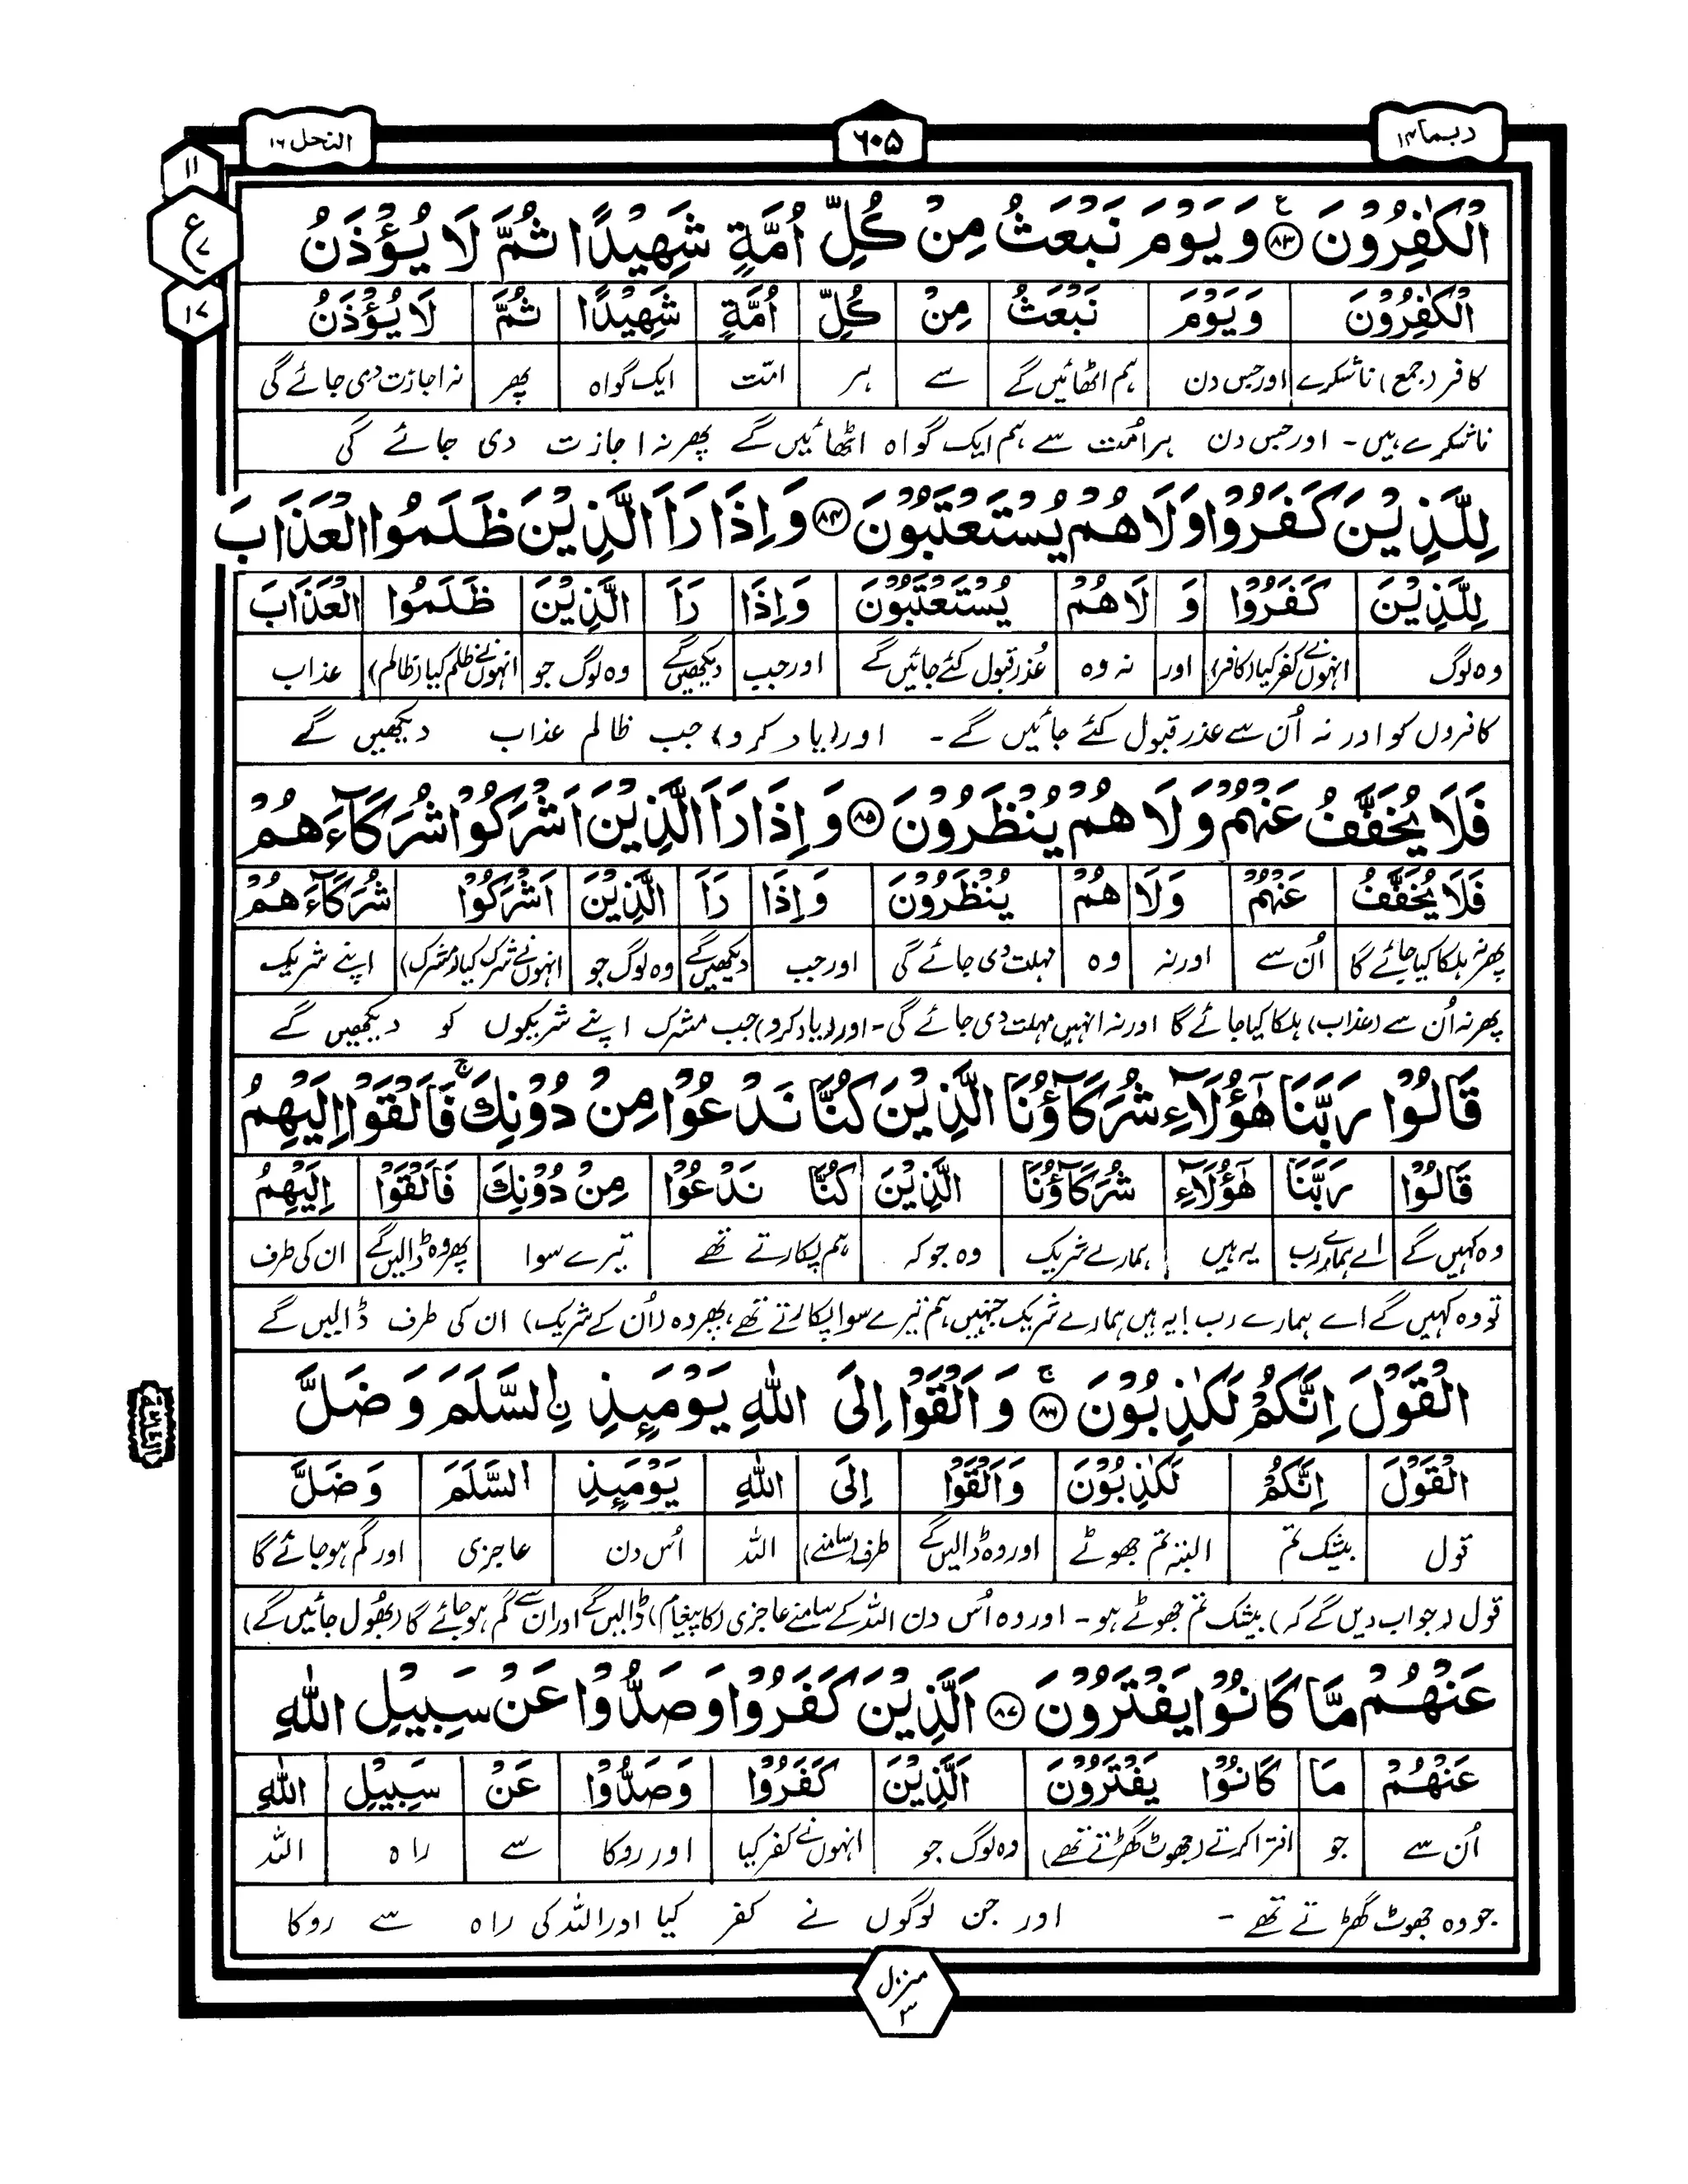 ربما ۱۴
۶۰۵
النحل ۱۶
۱۱
ع
۷
۱۷
الْكٰفِرُوْنَ ﴿۸۳﴾ وَيَوْمَ نَبْعَثُ مِنْ كُلِّ اُمَّةٍ شَهِيْدًا ثُمَّ لَا يُؤْذَنُ
الْكٰفِرُوْنَ وَيَوْمَ نَبْعَثُ مِنْ كُلِّ اُمَّةٍ شَهِيْدًا ثُمَّ لَا يُؤْذَنُ
کافر (جمع) ناشکرے اور جس دن ہم اٹھائیں گے سے ہر امّت ایک گواہ پھر نہ اجازت دی جائے گی
ناشکرے ہیں - اور جس دن ہر اُمت سے ہم ایک گواہ اٹھائیں گے پھر نہ اجازت دی جائے گی
لِلَّذِيْنَ كَفَرُوْا وَلَا هُمْ يُسْتَعْتَبُوْنَ ﴿۸۴﴾ وَاِذَا رَاَ الَّذِيْنَ ظَلَمُوا الْعَذَابَ
لِلَّذِيْنَ كَفَرُوْا وَ لَا هُمْ يُسْتَعْتَبُوْنَ وَاِذَا رَاَ الَّذِيْنَ ظَلَمُوا الْعَذَابَ
وہ لوگ انہوں نے کفر کیا (کافر) اور نہ وہ عُذر قبول کئے جائیں گے اور جب دیکھیں گے وہ لوگ جو انہوں نے ظلم کیا (ظالم) عذاب
کافروں کو اور نہ اُن سے عذر قبول کئے جائیں گے - اور (یاد کرو) جب ظالم عذاب دیکھیں گے
فَلَا يُخَفَّفُ عَنْهُمْ وَلَا هُمْ يُنْظَرُوْنَ ﴿۸۵﴾ وَاِذَا رَاَ الَّذِيْنَ اَشْرَكُوْا شُرَكَآءَهُمْ
فَلَا يُخَفَّفُ عَنْهُمْ وَلَا هُمْ يُنْظَرُوْنَ وَاِذَا رَاَ الَّذِيْنَ اَشْرَكُوْا شُرَكَآءَهُمْ
پھر نہ ہلکا کیا جائے گا اُن سے اور نہ وہ مہلت دی جائے گی اور جب دیکھیں گے وہ لوگ جو انہوں نے شرک کیا (مشرک) اپنے شریک
پھر نہ اُن سے (عذاب) ہلکا کیا جائے گا اور نہ انہیں مہلت دی جائے گی - اور (یاد کرو) جب مشرک اپنے شریکوں کو دیکھیں گے
قَالُوْا رَبَّنَا هٰٓؤُلَآءِ شُرَكَآؤُنَا الَّذِيْنَ كُنَّا نَدْعُوْا مِنْ دُوْنِكَ ۚ فَاَلْقَوْا اِلَيْهِمُ
قَالُوْا رَبَّنَا هٰٓؤُلَآءِ شُرَكَآؤُنَا الَّذِيْنَ كُنَّا نَدْعُوْا مِنْ دُوْنِكَ فَاَلْقَوْا اِلَيْهِمُ
وہ کہیں گے اے ہمارے رب یہ ہیں ہمارے شریک وہ جو کہ ہم پکارتے تھے تیرے سوا پھر وہ ڈالیں گے ان کی طرف
تو وہ کہیں گے اے ہمارے رب! یہ ہیں ہمارے شریک جنہیں ہم تیرے سوا پکارتے تھے، پھر وہ (اُن کے شریک) ان کی طرف ڈالیں گے
الْقَوْلَ اِنَّكُمْ لَكٰذِبُوْنَ ﴿۸۶﴾ ۚ وَاَلْقَوْا اِلَى اللّٰهِ يَوْمَئِذِ ِۨالسَّلَمَ وَضَلَّ
الْقَوْلَ اِنَّكُمْ لَكٰذِبُوْنَ وَاَلْقَوْا اِلَى اللّٰهِ يَوْمَئِذِ السَّلَمَ وَضَلَّ
قول بیشک تم البتہ تم جھوٹے اور وہ ڈالیں گے طرف (سامنے) اللہ اُس دن عاجزی اور گم ہو جائے گا
قول (جواب دیں گے کہ) بیشک تم جھوٹے ہو - اور وہ اُس دن اللہ کے سامنے عاجزی (کا پیغام) ڈالیں گے اور ان سے گم ہو جائے گا (بھول جائیں گے)
عَنْهُمْ مَّا كَانُوْا يَفْتَرُوْنَ ﴿۸۷﴾ اَلَّذِيْنَ كَفَرُوْا وَصَدُّوْا عَنْ سَبِيْلِ اللّٰهِ
عَنْهُمْ مَا كَانُوْا يَفْتَرُوْنَ اَلَّذِيْنَ كَفَرُوْا وَصَدُّوْا عَنْ سَبِيْلِ اللّٰهِ
اُن سے جو افترا کرتے (جھوٹ گھڑتے تھے) وہ لوگ جو انہوں نے کفر کیا اور روکا سے راہ اللہ
جو وہ جھوٹ گھڑتے تھے - اور جن لوگوں نے کفر کیا اور اللہ کی راہ سے روکا
منزل ۳